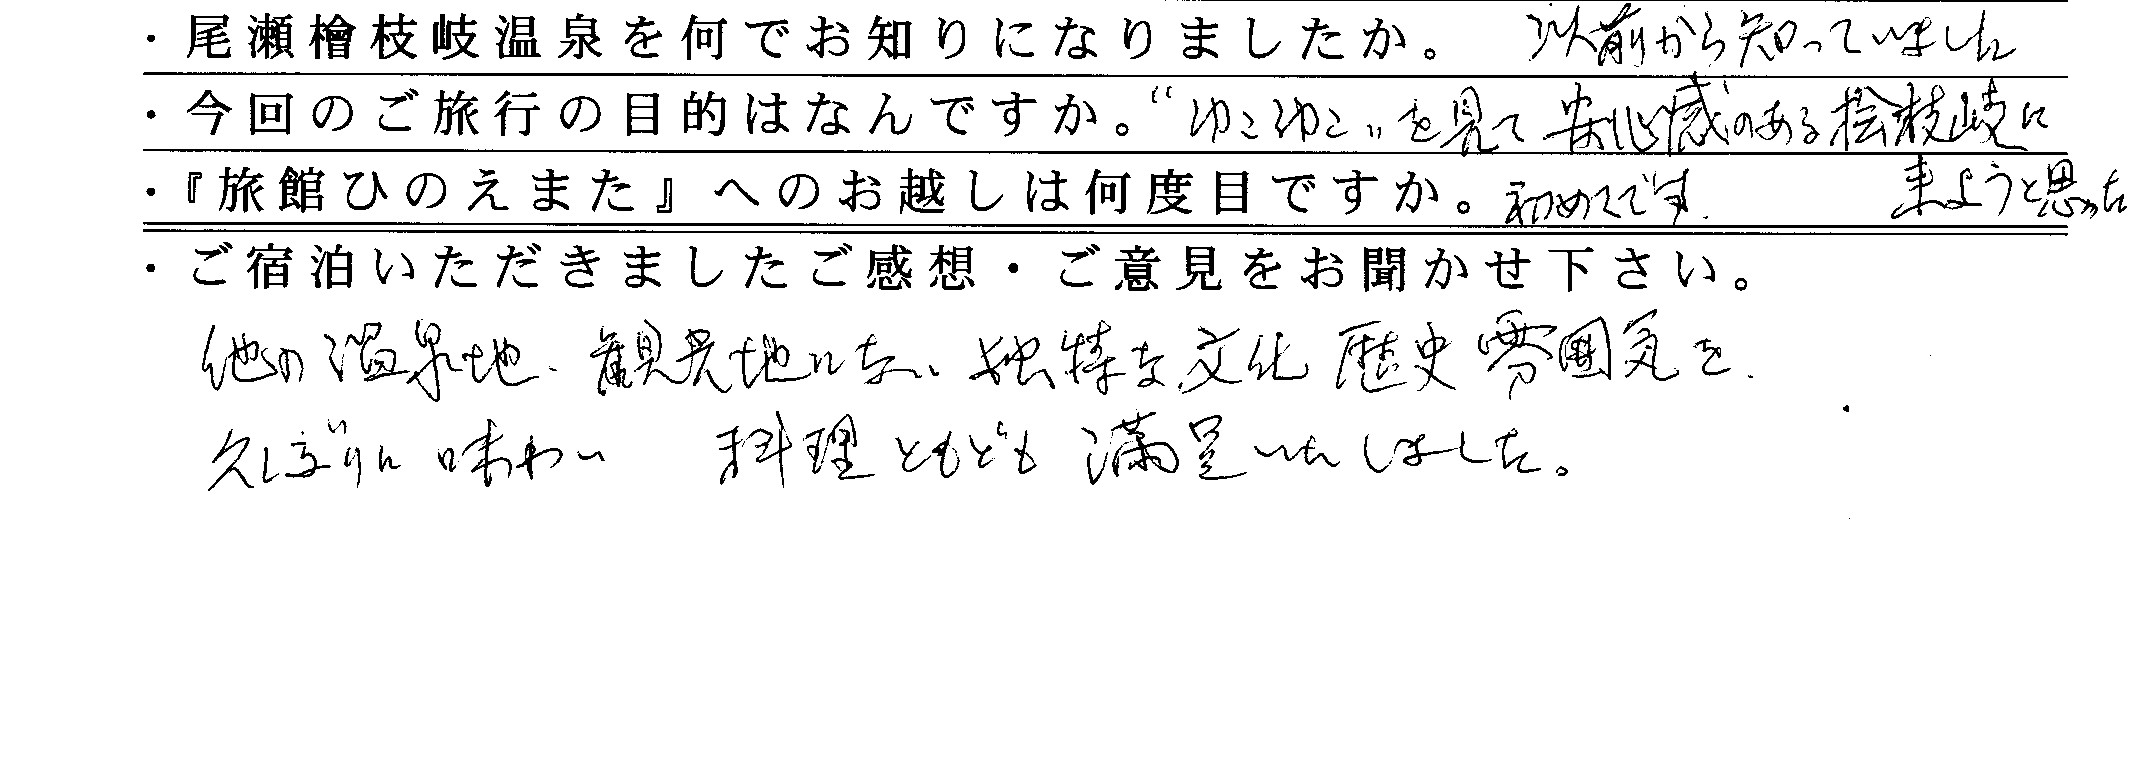 ・尾瀬檜枝岐温泉を何でお知りになりましたか。 以前から知っていました
・今回のご旅行の目的はなんですか。“ゆこゆこ”を見て安心感のある桧枝岐に
来ようと思った
・『旅館ひのえまた』へのお越しは何度目ですか。初めてです.
・ご宿泊いただきましたご感想・ご意見をお聞かせ下さい。
他の温泉地、観光地にない独特な文化 歴史 雰囲気を、
久しぶりに味わい 料理ともども満足いたしました。